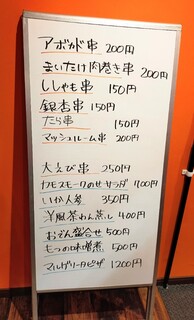 アボカド串 200円
まいたけ肉巻き串 200円
ししゃも串 150円
銀杏串 150円
たら串 150円
マッシュルーム串 200円
大えび串 250円
カモスモークのせサラダ 700円
いか人参 350円
洋風茶わん蒸し 400円
おでん盛合せ 500円
もつの味噌煮 500円
マルゲリータピザ 1200円